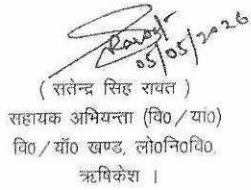 Rawat
05/05/2026
( सतेन्द्र सिंह रावत )
सहायक अभियन्ता (वि० / यां०)
वि० / यॉ० खण्ड, लो०नि०वि०,
ऋषिकेश ।